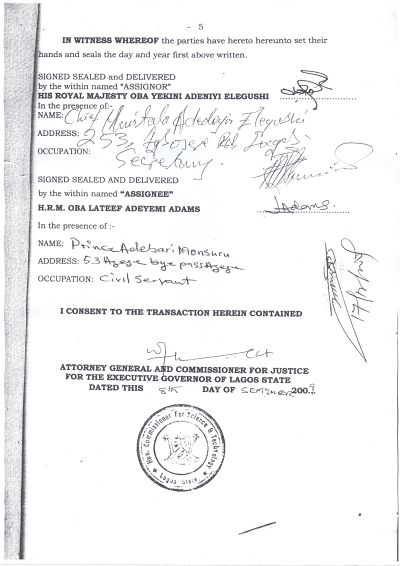 - 5
IN WITNESS WHEREOF the parties have hereto hereunto set their
hands and seals the day and year first above written.
SIGNED SEALED and DELIVERED
by the within named "ASSIGNOR"
HIS ROYAL MAJESTY OBA YEKINI ADENIYI ELEGUSHI
In the presence of:-
NAME: Chief Mustafa Adedoyin Elegushi
ADDRESS: 253, Rd Lagos
OCCUPATION: Secretary.
SIGNED SEALED AND DELIVERED
by the within named "ASSIGNEE"
H.R.M. OBA LATEEF ADEYEMI ADAMS
LAdams.
In the presence of :-
NAME: Prince Adebari Monsuru
ADDRESS: 53 Azege bye pass Azege
OCCUPATION: Civil Servant
I CONSENT TO THE TRANSACTION HEREIN CONTAINED
ATTORNEY GENERAL AND COMMISSIONER FOR JUSTICE
FOR THE EXECUTIVE GOVERNOR OF LAGOS STATE
DATED THIS 8th DAY OF SEPTEMBER 2009
Hon. Commissioner For Science & Technology
Lagos State